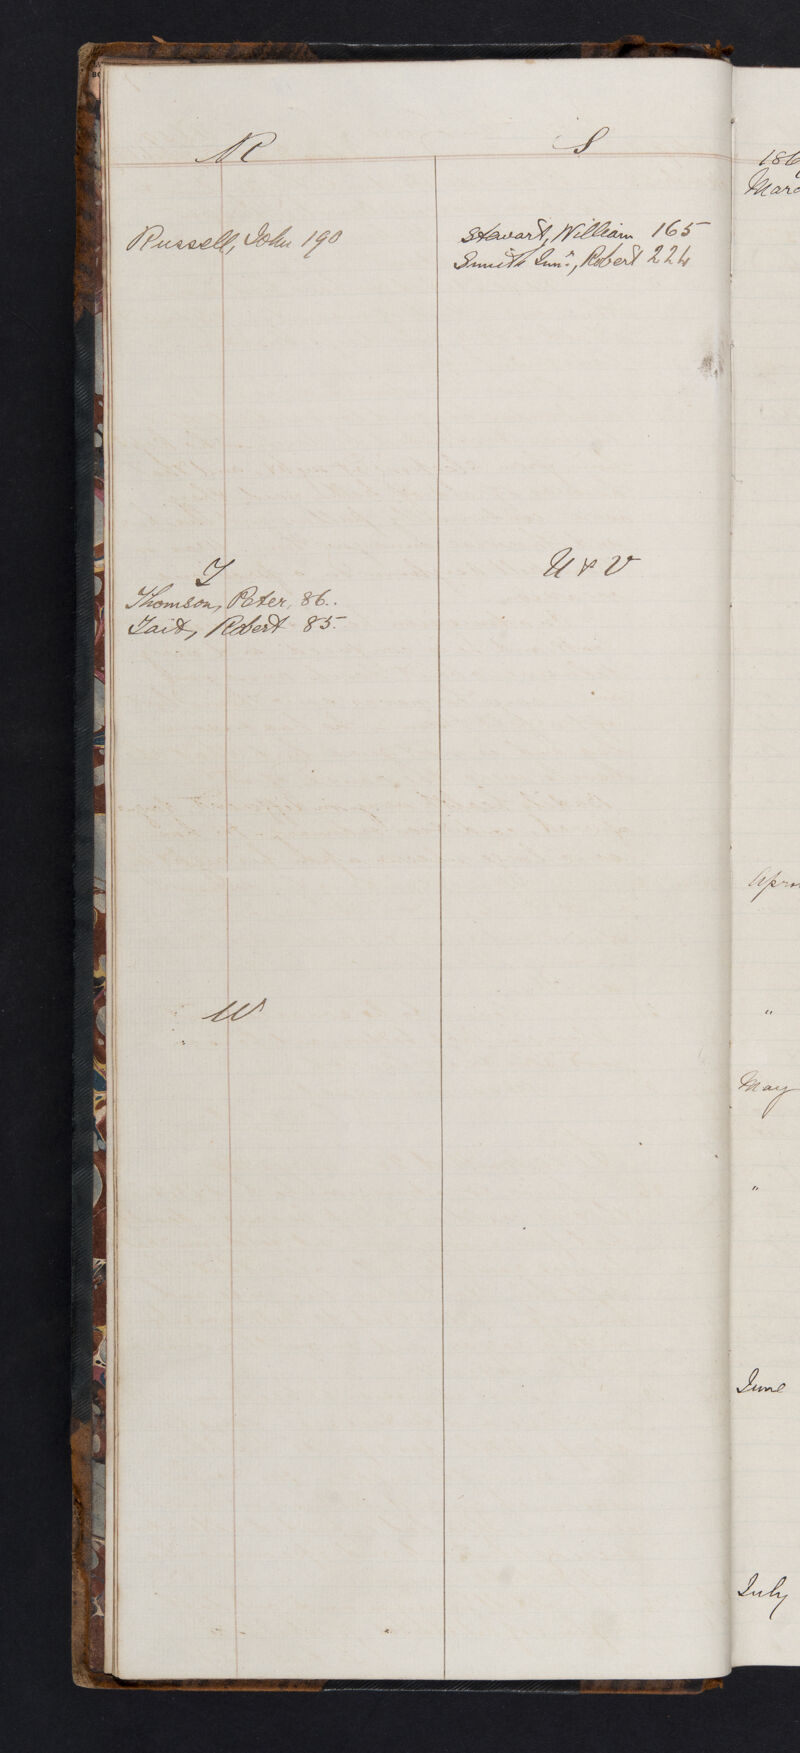 R
Russell, John 190
S
Stewart, William 165
Smith Junr., Robert 224
T
Thomson, Peter, 86.
Tait, Robert 85.
U & V
W
186
Marc
Apri
"
May
"
June
July